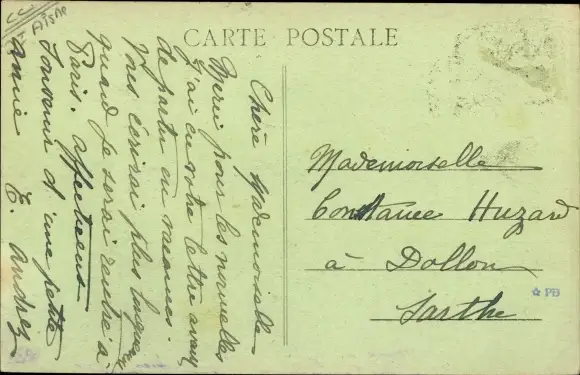 Aisne
CARTE POSTALE
Chère Mademoiselle
Merci pour les nouvelles
J'ai eu votre lettre avant
de partir en vacances.
Vous écrirai plus longuement
quand je serai rentré à
Paris. affectueux
Souvenir d'une petite
amie
E. Andrey
Mademoiselle
Constance Huzard
à Dollon
Sarthe
PB